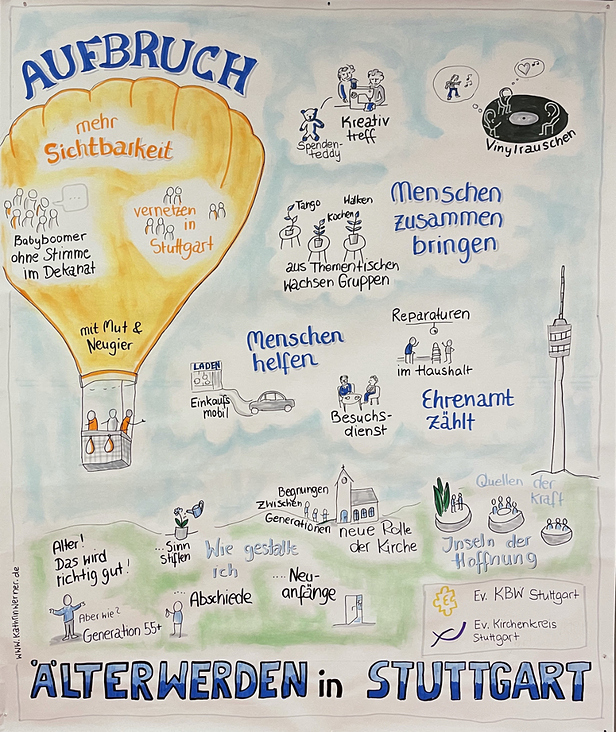 AUFBRUCH
mehr
Sichtbarkeit
Babyboomer
ohne Stimme
im Dekanat
vernetzen
in
Stuttgart
mit Mut &
Neugier
Spenden-
teddy
Kreativ
treff
Vinylrauschen
Tango
Kochen
Walken
aus Thementischen
wachsen Gruppen
Menschen
zusammen
bringen
Menschen
helfen
LADEN
Einkaufs
mobil
Besuchs-
dienst
Reparaturen
im Haushalt
Ehrenamt
zählt
Begnungen
zwischen
Generationen
neue Rolle
der Kirche
Quellen der
Kraft
Inseln der
Hoffnung
Alter!
Das wird
richtig gut!
Aber wie?
Generation 55+
...Sinn
stiften
Wie gestalte
ich
...Abschiede
...Neu-
anfänge
Ev. KBW Stuttgart
Ev. Kirchenkreis
Stuttgart
www.kathrinwerner.de
ÄLTERWERDEN in STUTTGART